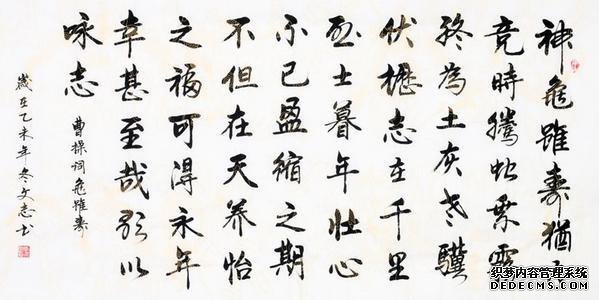 神龜雖壽猶有
竟時騰蛇乘霧
終為土灰老驥
伏櫪志在千里
烈士暮年壯心
不已盈縮之期
不但在天养怡
之福可得永年
幸甚至哉歌以
咏志
曹操詞龜雖壽
歲在乙未年冬文志书
织梦内容管理系统
DEDECMS.COM